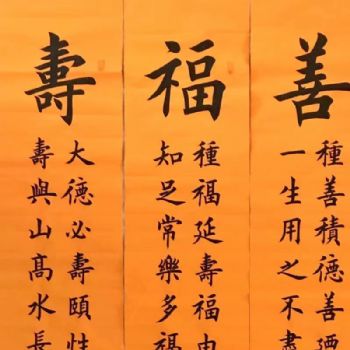 善
種善積德善
一生用之不盡
福
種福延壽福由
知足常樂多福
壽
大德必壽頤性
壽與山高水長